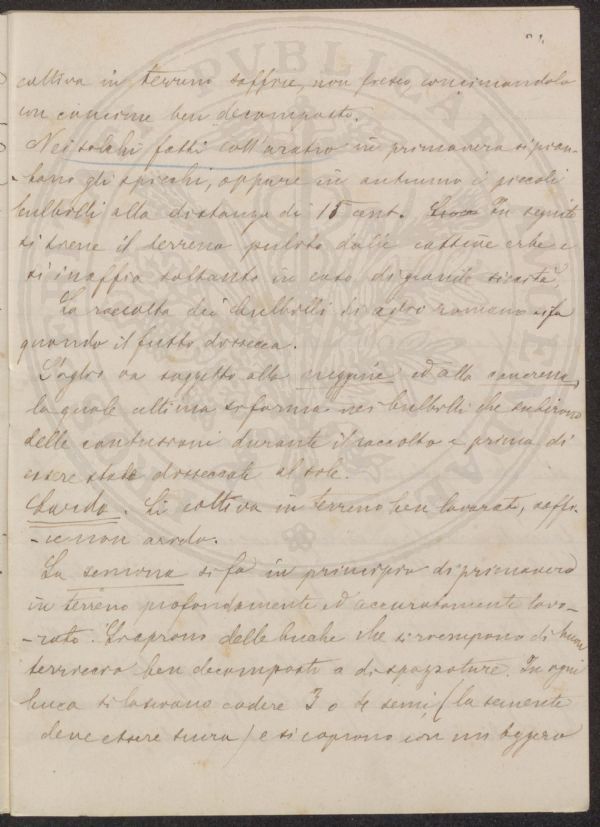 coltiva in terreno soffice, non fresco, concimandolo
con concime ben decomposto.
Nei solchi fatti coll'aratro in primavera si pian-
tano gli spicchi, oppure in autunno i piccoli
bulbilli alla distanza di 15 cent. In seguito
si tiene il terreno pulito dalle cattive erbe e
si inaffia soltanto in caso di grande siccità.
La raccolta dei bulbilli di aglio romano si fa
quando il fusto dissecca.
L'aglio va soggetto alla ruggine ed alla cancrena,
la quale ultima si forma nei bulbilli che subirono
delle contusioni durante il raccolto e prima di
essere stati disseccati al sole.
Cardo. Si coltiva in terreno ben lavorato, soffi-
-ce non arido.
La semina si fa in principio di primavera
in terreno profondamente ed accuratamente lavo-
-rato. Si aprono delle buche che si riempono di buon
terriccio ben decomposti a di spazzature. In ogni
buca si lasciano cadere 3 o 4 semi (la semente
deve essere scura) e si coprono con un leggero